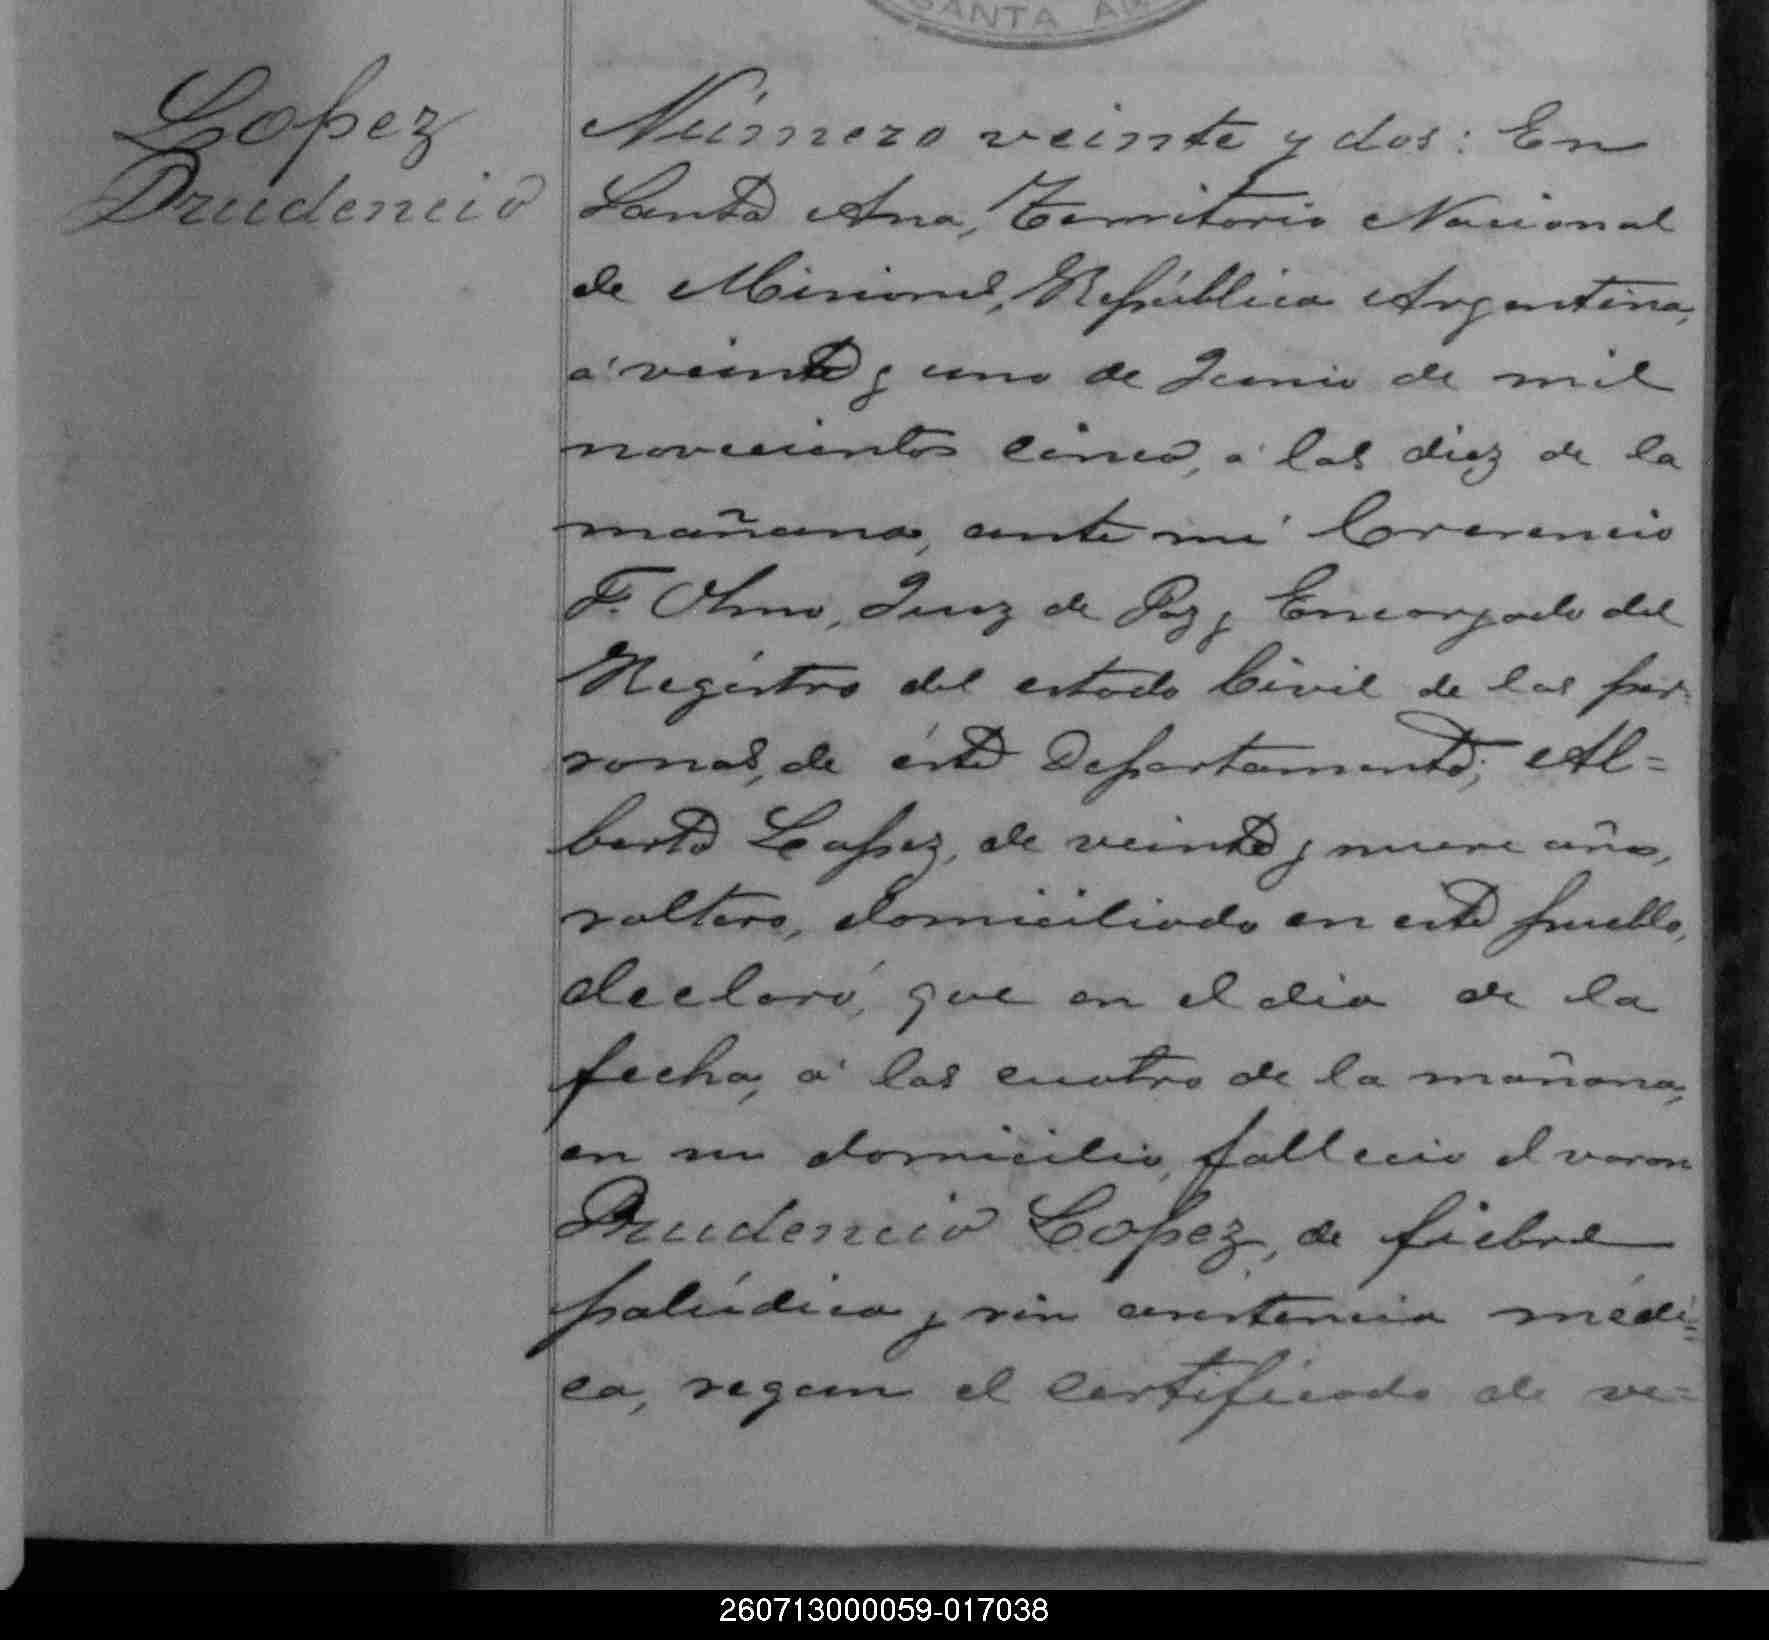 SANTA A
Lopez
Prudencio
Número veinte y dos: En
Santa Ana, Territorio Nacional
de Misiones, República Argentina,
á veinte y uno de Junio de mil
novecientos cinco, á las diez de la
mañana, ante mi
F. Olmo, Juez de Paz y Encargado del
Registro del estado Civil de las per-
sonas, de éste Departamento; Al=
berto Lopez, de veinte y nueve años,
soltero, domiciliado en este pueblo,
declaró, que en el dia de la
fecha, á las cuatro de la mañana,
en su domicilio, fallecio el varon
Prudencio Lopez, de fiebre
palúdica y sin asistencia médi=
ca, segun el certificado de ve=
260713000059-017038